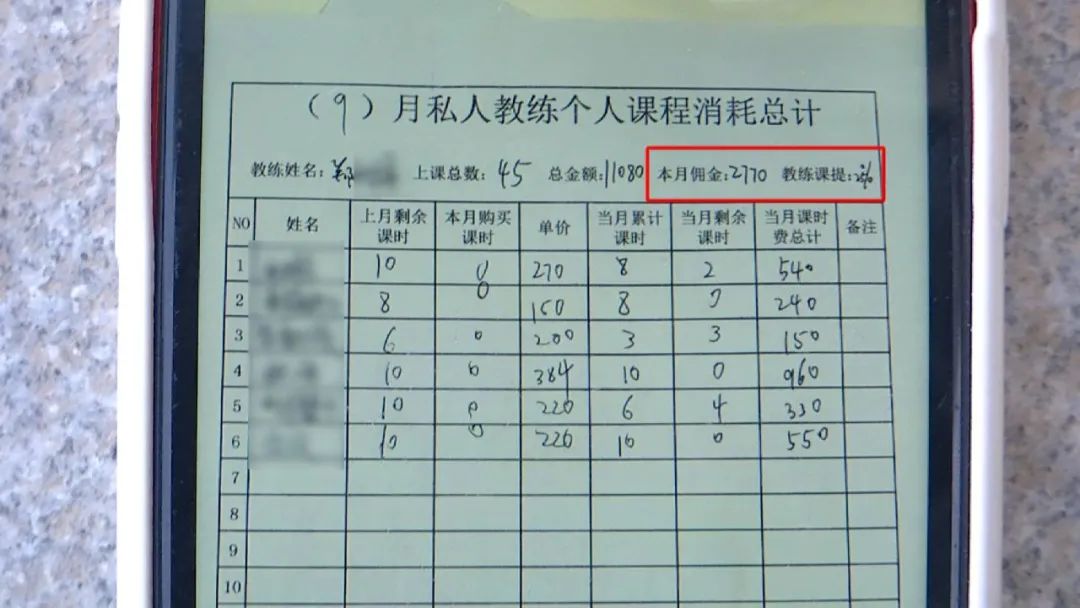 （9）月私人教练个人课程消耗总计
教练姓名: 上课总数: 45 总金额: 11080 本月佣金: 2770 教练课提:
NO 姓名 上月剩余课时 本月购买课时 单价 当月累计课时 当月剩余课时 当月课时费总计 备注
1 10 0 270 8 2 540
2 8 0 8 0 240
3 6 0 200 3 3 150
4 10 0 384 10 0 960
5 10 0 220 6 4 330
6 10 0 220 10 0 550
7
8
9
10